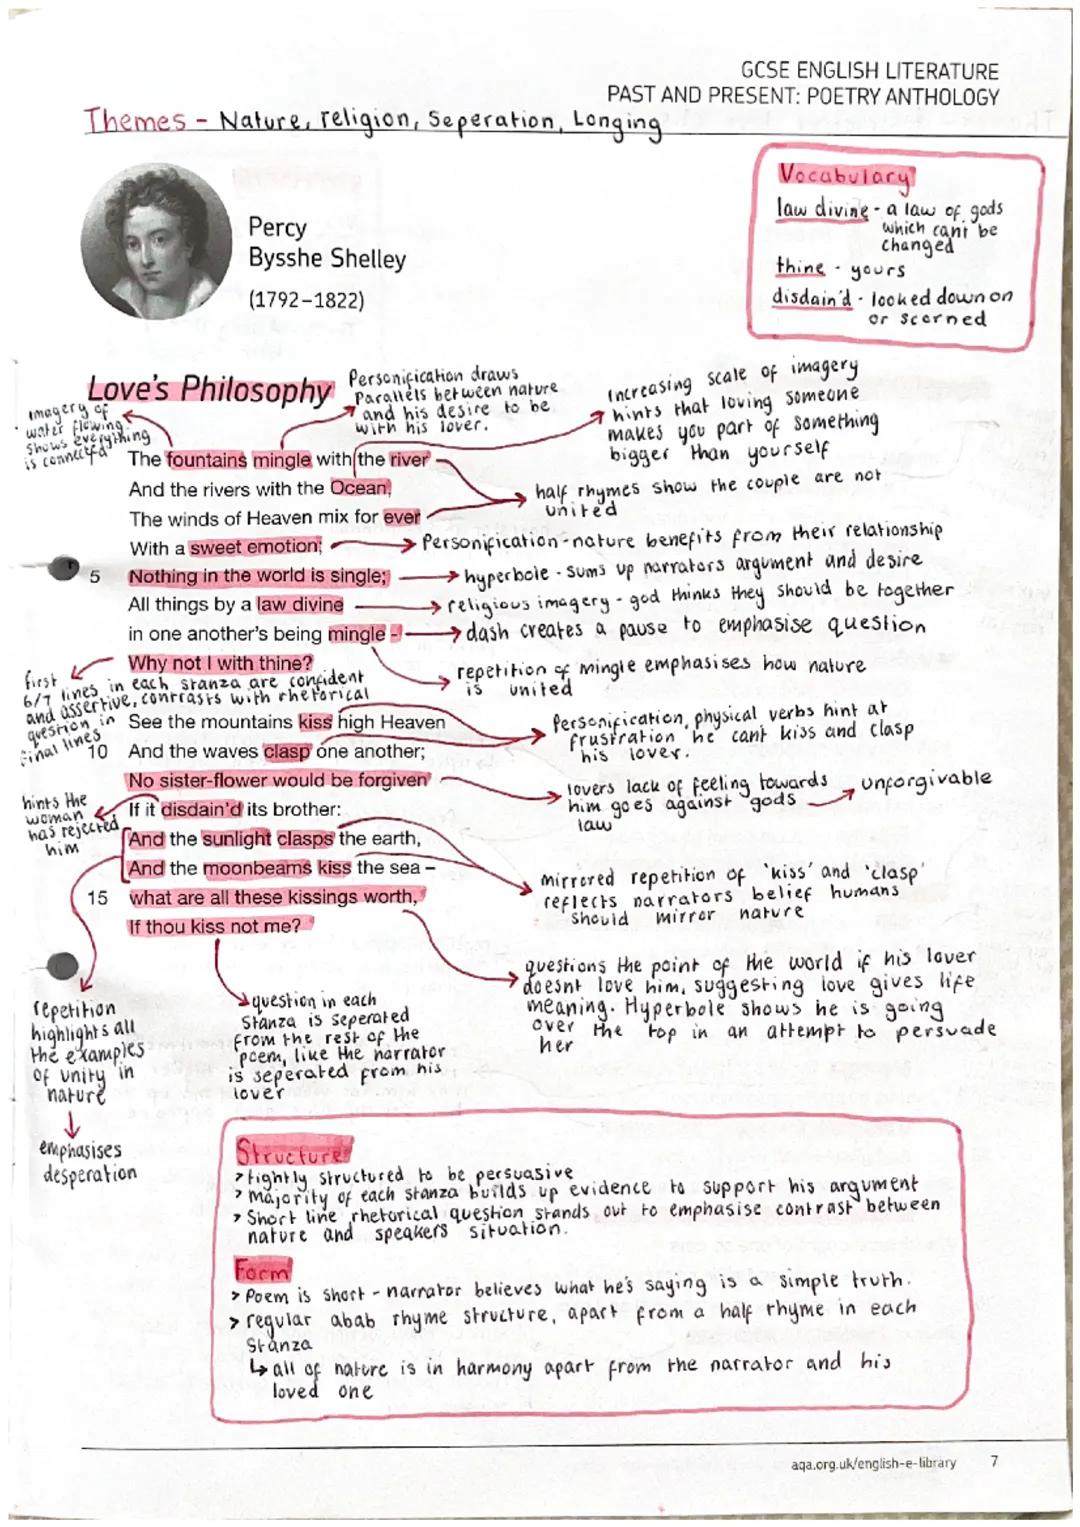 GCSE ENGLISH LITERATURE
PAST AND PRESENT: POETRY ANTHOLOGY
Themes - Nature, religion, Seperation, Longing
Vocabulary
law divine - a law of gods
which cant be
changed
thine - yours
disdain'd - looked down on
or scorned
Percy
Bysshe Shelley
(1792–1822)
Love's Philosophy
Personification draws
Parallels between nature
and his desire to be
with his lover.
increasing scale of imagery
hints that loving someone
makes you part of something
bigger than yourself
imagery of
water flowing
shows everything
is connected
The fountains mingle with the river
And the rivers with the Ocean,
The winds of Heaven mix for ever
With a sweet emotion;
5 Nothing in the world is single;
All things by a law divine
in one another's being mingle -
Why not I with thine?
half rhymes show the couple are not
united
Personification - nature benefits from their relationship
hyperbole - sums up narrators argument and desire
religious imagery - god thinks they should be together
dash creates a pause to emphasise question
repetition of mingle emphasises how nature
is united
first
6/7 lines in each stanza are confident
and assertive, contrasts with rhetorical
question in
final lines
See the mountains kiss high Heaven
10 And the waves clasp one another;
No sister-flower would be forgiven
If it disdain'd its brother:
And the sunlight clasps the earth,
And the moonbeams kiss the sea –
15 what are all these kissings worth,
If thou kiss not me?
Personification, physical verbs hint at
frustration he cant kiss and clasp
his lover.
lovers lack of feeling towards
him goes against gods
law
unforgivable
hints the
woman
has rejected
him
mirrored repetition of 'kiss' and 'clasp'
reflects narrators belief humans
should mirror nature
questions the point of the world if his lover
doesnt love him, suggesting love gives life
meaning. Hyperbole shows he is going
over the top in an attempt to persuade
her
repetition
highlights all
the examples
of unity in
nature
emphasises
desperation
question in each
Stanza is seperated
from the rest of the
poem, like the narrator
is seperated from his
lover
Structure
> tightly structured to be persuasive
> majority of each stanza builds up evidence to support his argument
> Short line rhetorical question stands out to emphasise contrast between
nature and speakers situation.
Form
> Poem is short - narrator believes what he's saying is a simple truth.
> regular abab rhyme structure, apart from a half rhyme in each
Stanza
↳ all of nature is in harmony apart from the narrator and his
loved one
aqa.org.uk/english-e-library 7